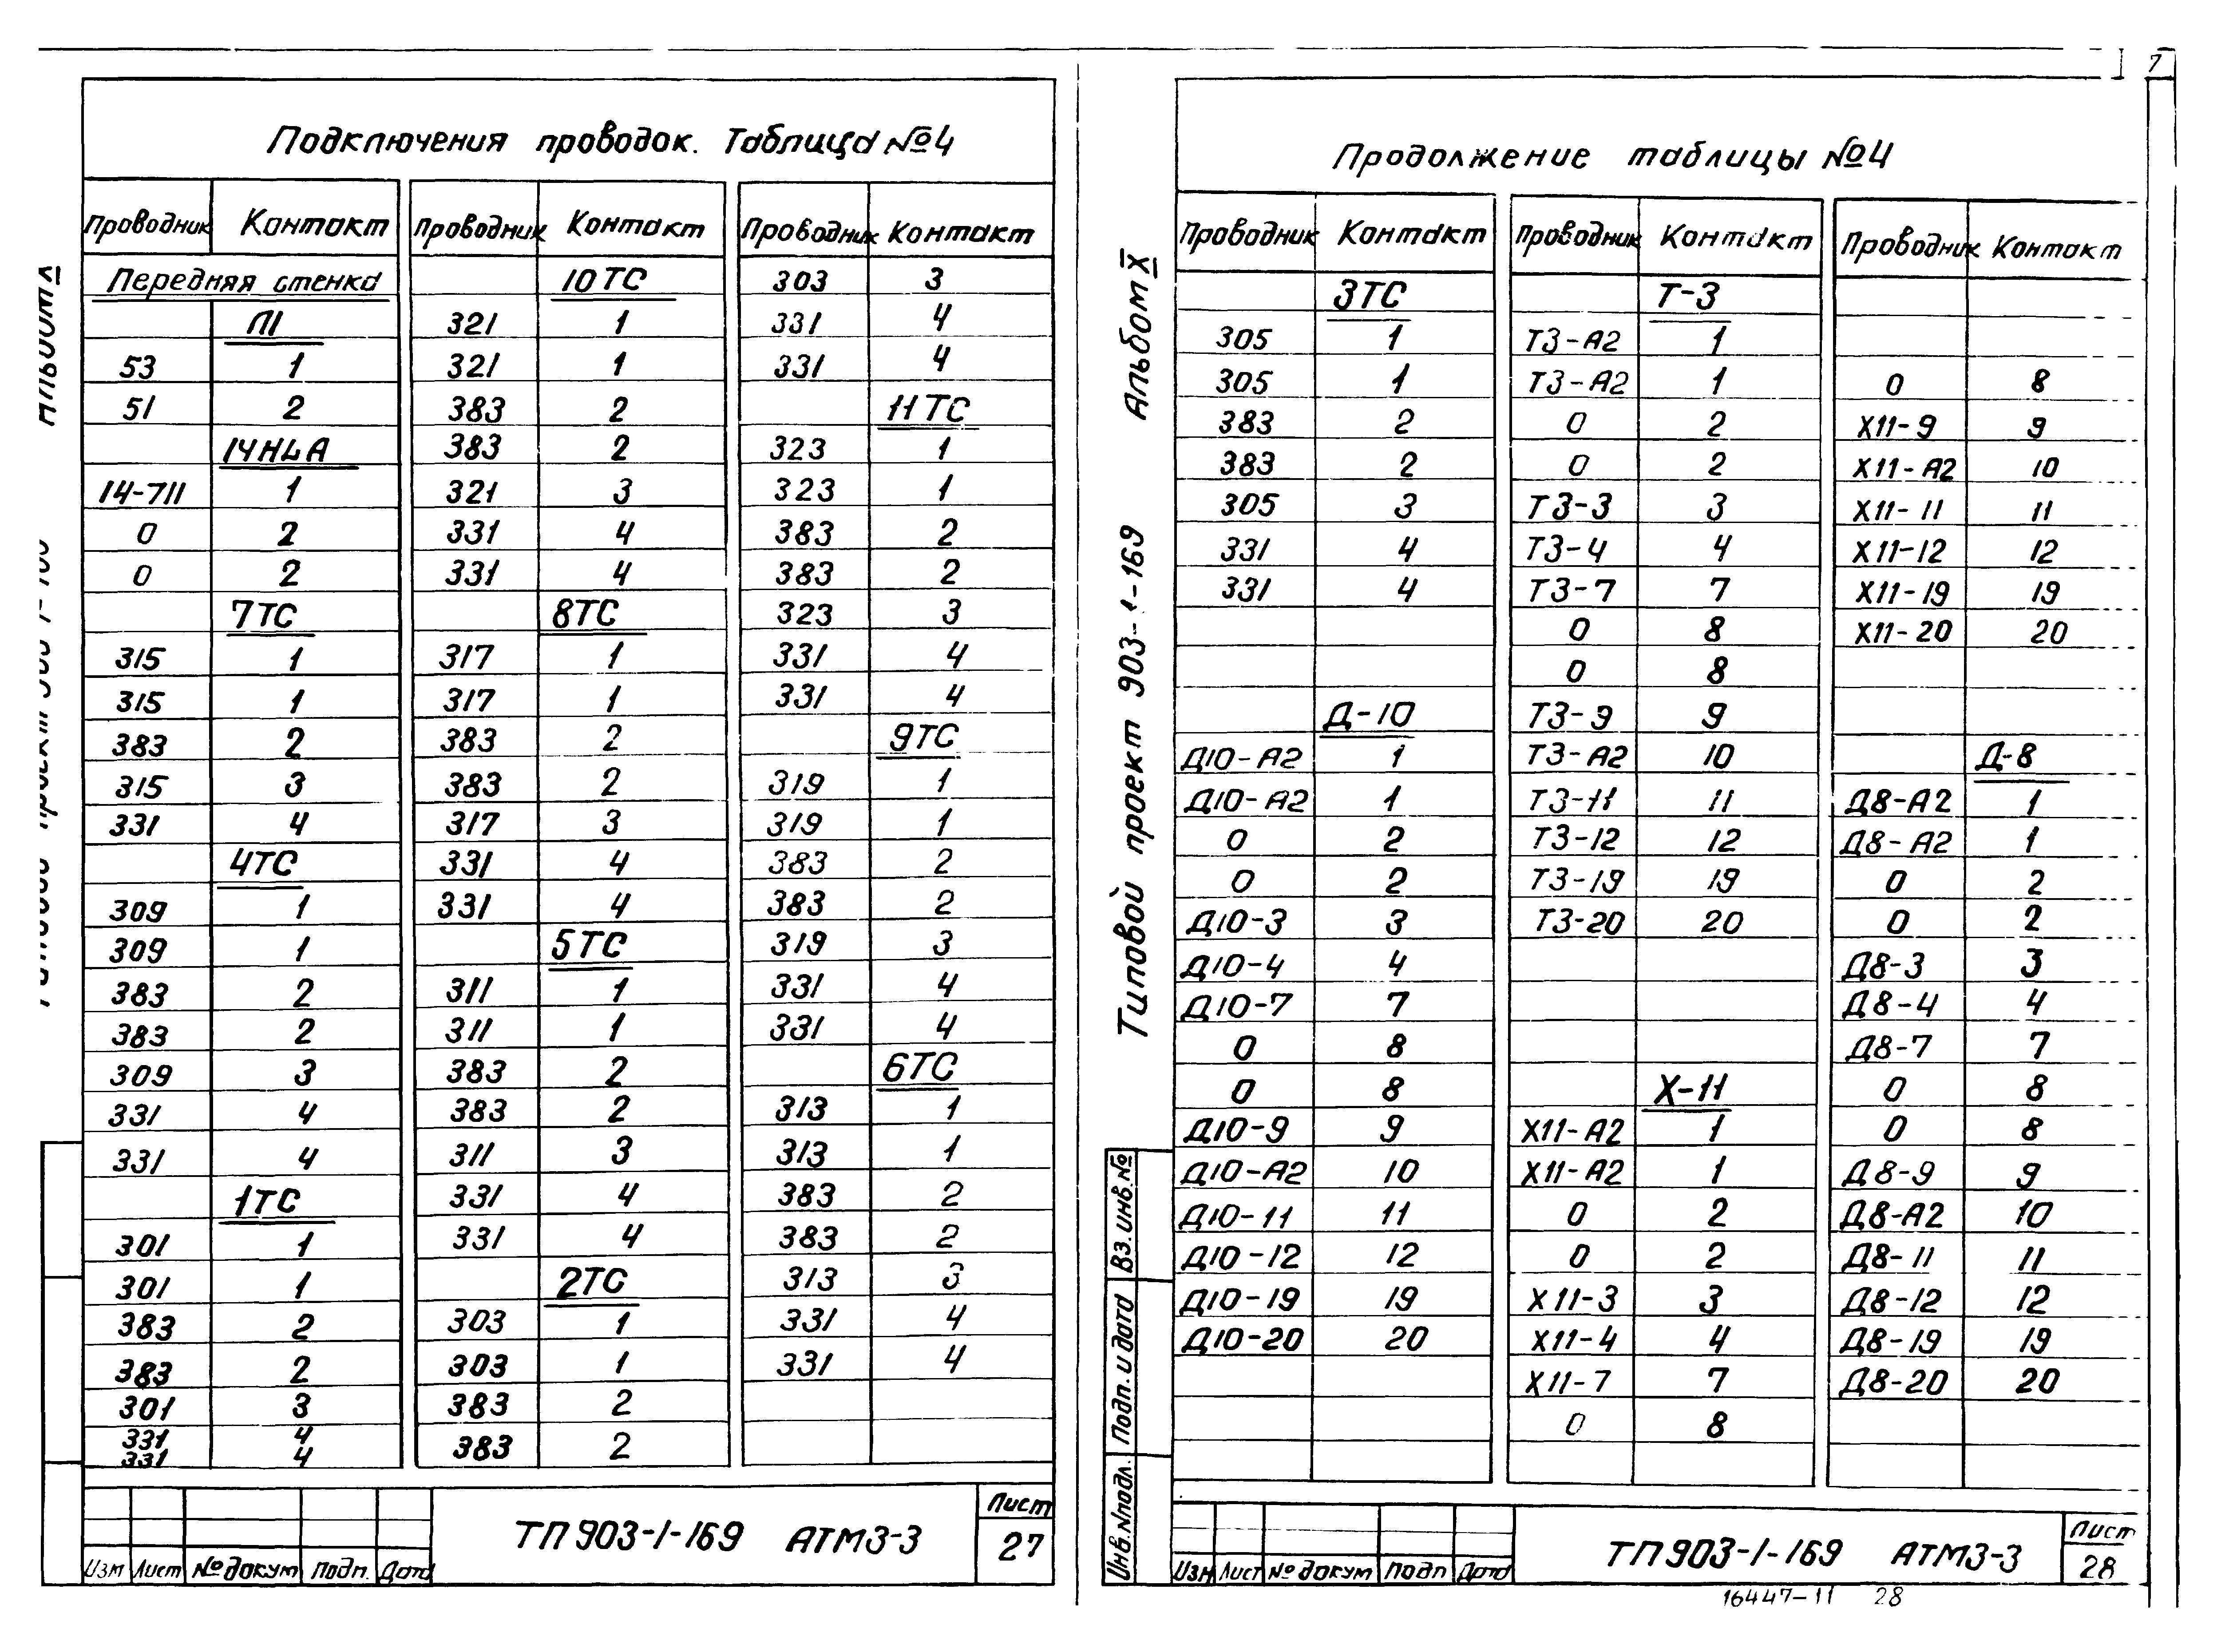 7
Подключения проводок. Таблица №4
Проводник Контакт
Передняя стенка
П1
53 1
51 2
14HLA
14-711 1
0 2
0 2
7ТС
315 1
315 1
383 2
315 3
331 4
4ТС
309 1
309 1
383 2
383 2
309 3
331 4
331 4
1ТС
301 1
301 1
383 2
383 2
301 3
331 4
331 4
Проводник Контакт
10ТС
321 1
321 1
383 2
383 2
321 3
331 4
331 4
8ТС
317 1
317 1
383 2
383 2
317 3
331 4
331 4
5ТС
311 1
311 1
383 2
383 2
311 3
331 4
331 4
2ТС
303 1
303 1
383 2
383 2
Проводник Контакт
303 3
331 4
331 4
11ТС
323 1
323 1
383 2
383 2
323 3
331 4
331 4
9ТС
319 1
319 1
383 2
383 2
319 3
331 4
331 4
6ТС
313 1
313 1
383 2
383 2
313 3
331 4
331 4
Изм Лист № докум Подп. Дата
ТП 903-1-169 АТМ3-3
Лист
27
Альбом X
Типовой проект 903-1-169
Вз. инв. №
Подп. и дата
Инв. № подл.
Продолжение таблицы №4
Проводник Контакт
3ТС
305 1
305 1
383 2
383 2
305 3
331 4
331 4
Д-10
Д10-А2 1
Д10-А2 1
0 2
0 2
Д10-3 3
Д10-4 4
Д10-7 7
0 8
0 8
Д10-9 9
Д10-А2 10
Д10-11 11
Д10-12 12
Д10-19 19
Д10-20 20
Проводник Контакт
Т-3
Т3-А2 1
Т3-А2 1
0 2
0 2
Т3-3 3
Т3-4 4
Т3-7 7
0 8
0 8
Т3-9 9
Т3-А2 10
Т3-11 11
Т3-12 12
Т3-19 19
Т3-20 20
Х-11
Х11-А2 1
Х11-А2 1
0 2
0 2
Х11-3 3
Х11-4 4
Х11-7 7
0 8
Проводник Контакт
0 8
Х11-9 9
Х11-А2 10
Х11-11 11
Х11-12 12
Х11-19 19
Х11-20 20
Д-8
Д8-А2 1
Д8-А2 1
0 2
0 2
Д8-3 3
Д8-4 4
Д8-7 7
0 8
0 8
Д8-9 9
Д8-А2 10
Д8-11 11
Д8-12 12
Д8-19 19
Д8-20 20
Изм Лист № докум Подп Дата
ТП 903-1-169 АТМ3-3
Лист
28
16447-11 28